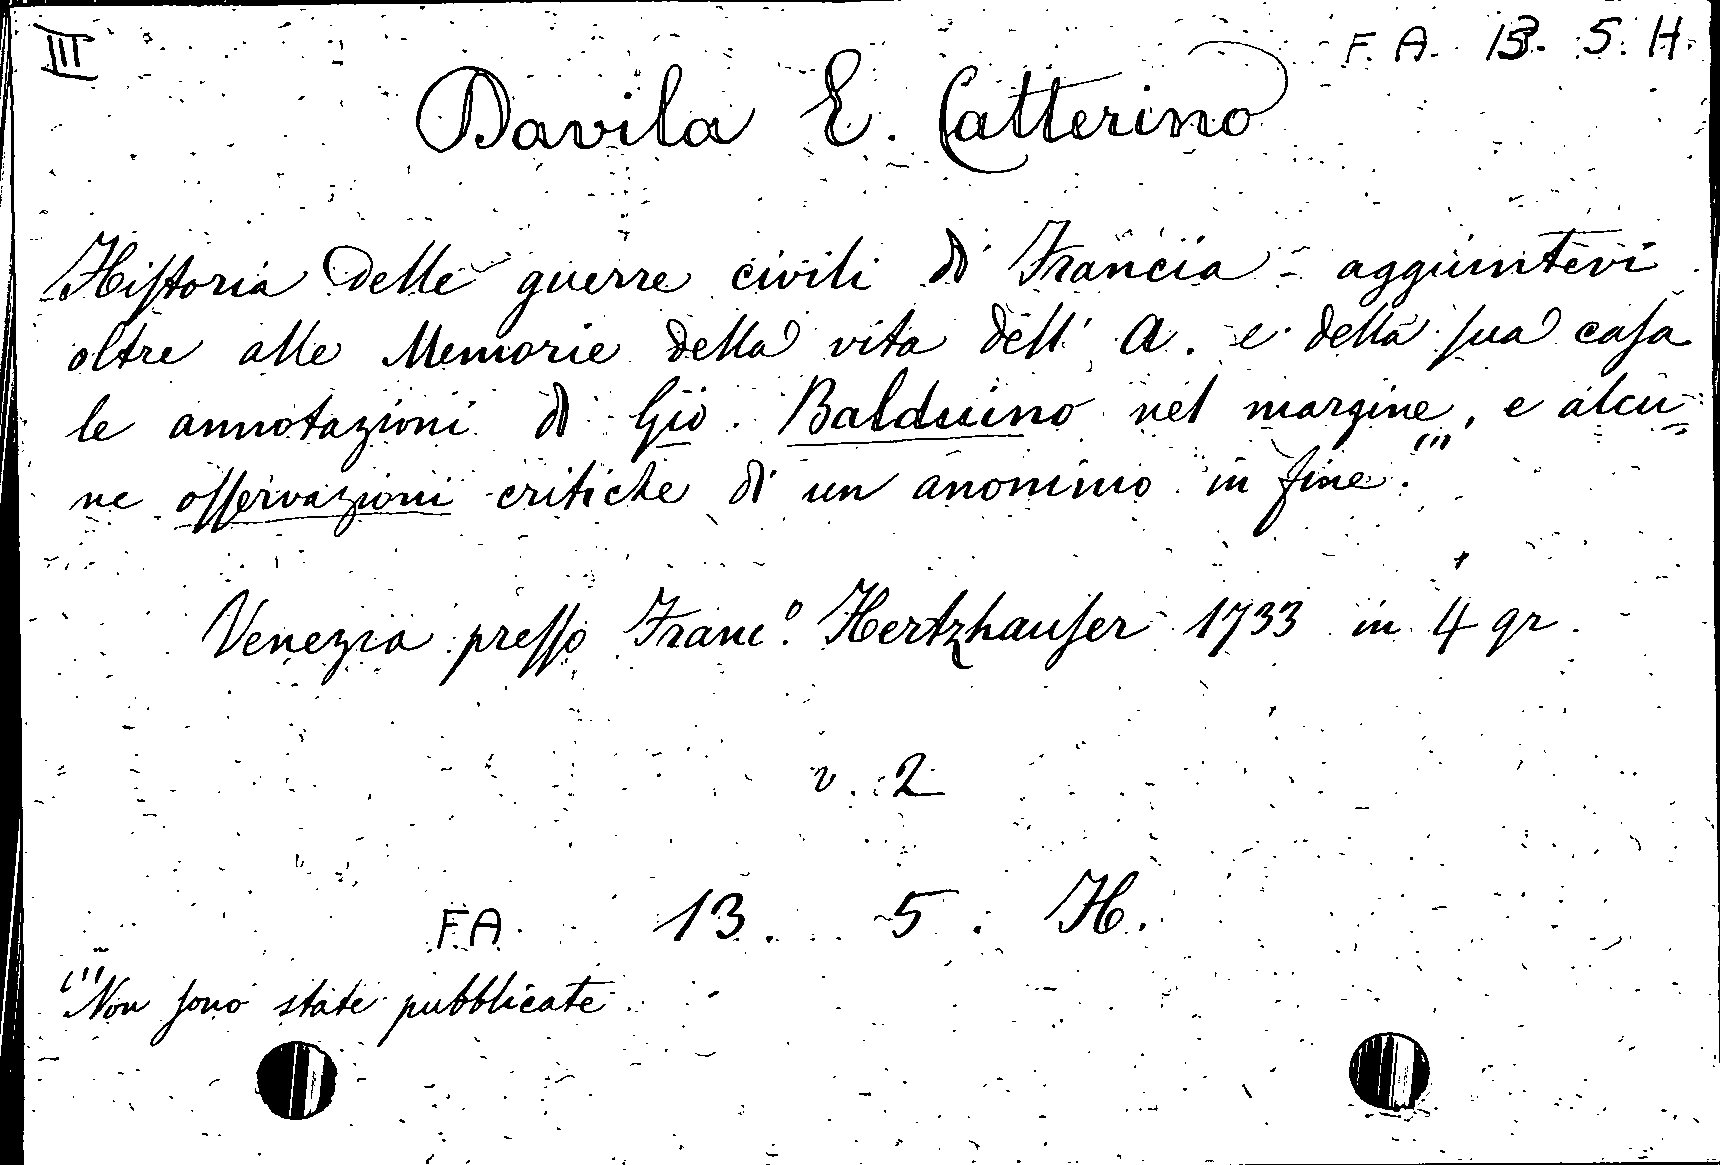 III
F. A. 13. 5. H.
Davila E. Catterino
Hiſtoria delle guerre civili di Francia - aggiuntevi
oltre alle Memorie della vita dell' A. e della ſua caſa
le annotazioni di Gio. Balduino nel margine, e alcu-
ne oſſervazioni critiche di un anonimo in fine. (1)
Venezia preſſo Franc.º Hertzhauſer 1733 in 4 gr.
v. 2
F.A. 13. 5. H.
(1) Non ſono state pubblicate.